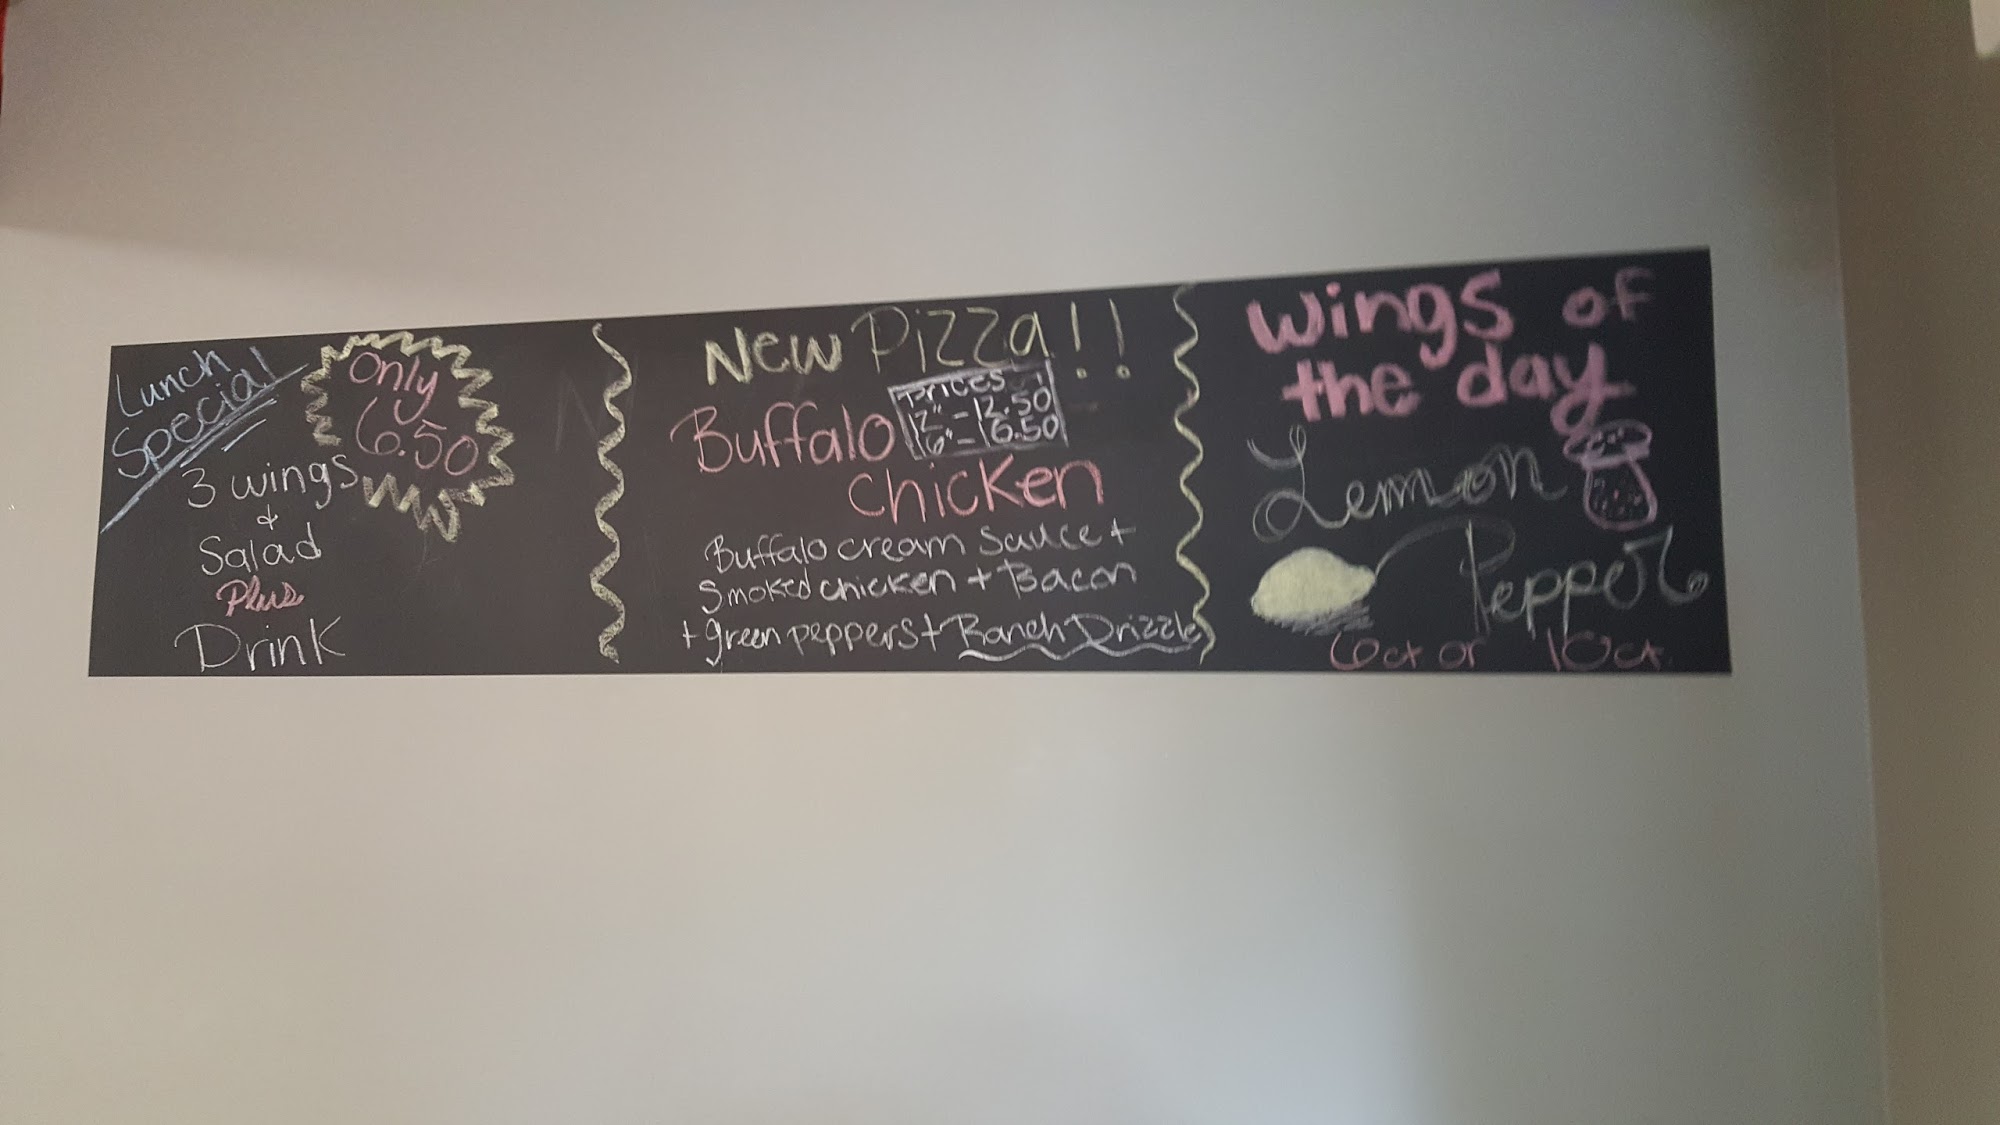 Lunch
Special
Only
6.50
3 wings
&
Salad
Plus
Drink
New Pizza!!
Prices
12" - 12.50
6" - 6.50
Buffalo
Chicken
Buffalo cream sauce +
Smoked chicken + Bacon
+ green peppers + Ranch Drizzle
Wings of
the day
Lemon
Pepper
6ct or 10ct.